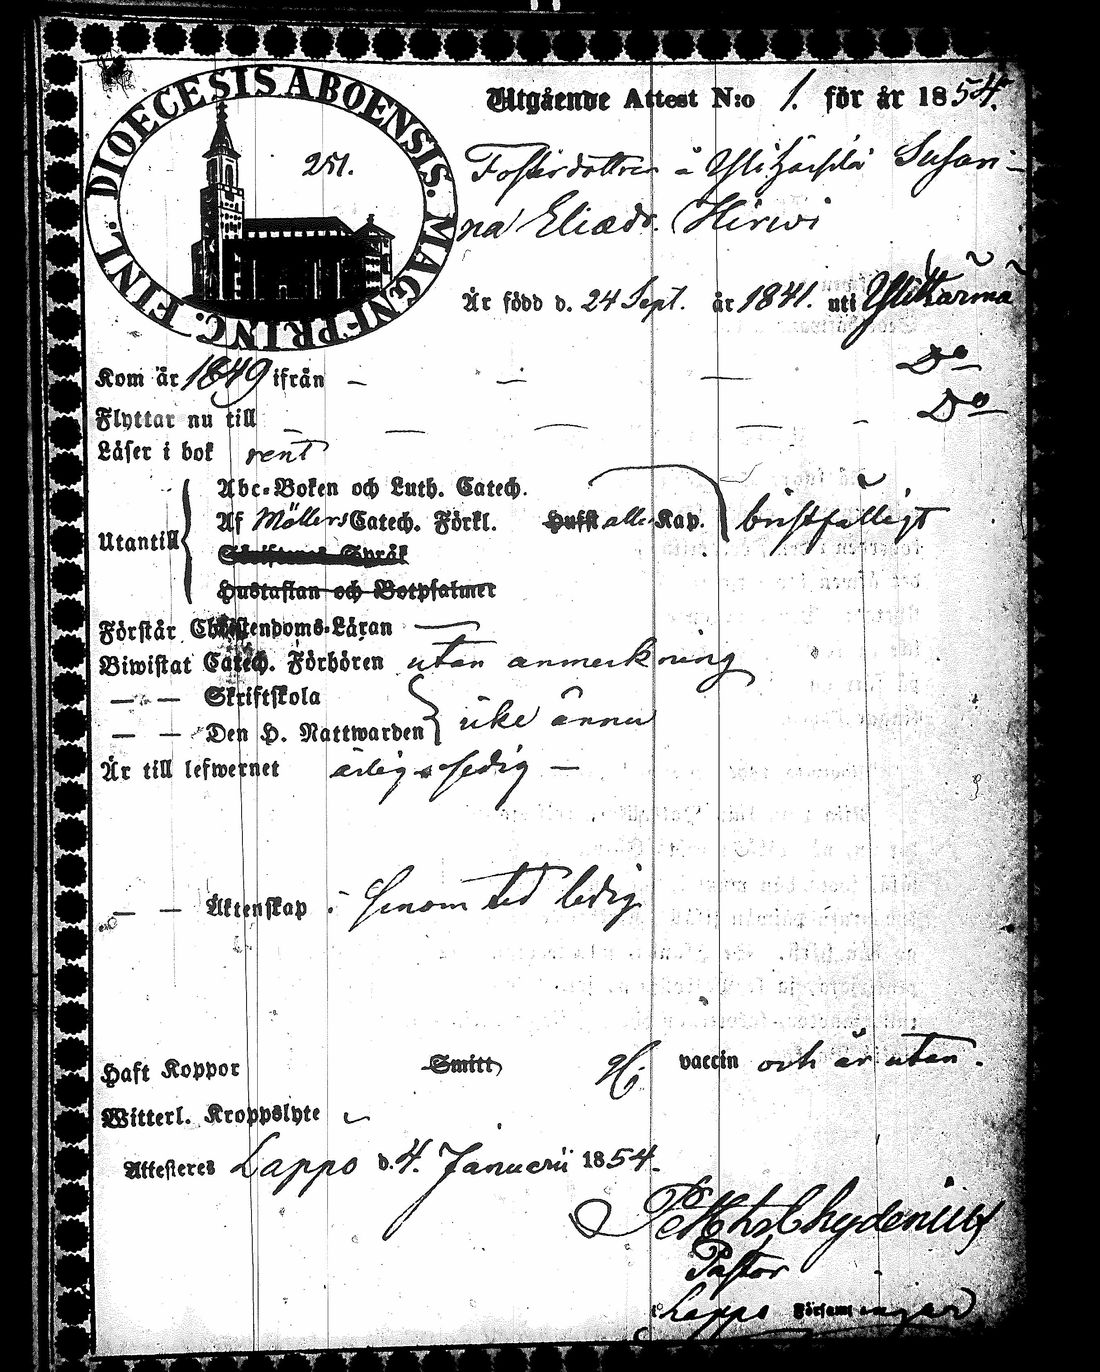 DIOECESIS ABOENSIS. MAGNI PRINC. FINL.
251.
Utgående Attest N:o 1. för år 1854.
Fosterdottren å Susan-
na Eliædr. Hirwi
Är född d. 24 Sept. år 1841. uti Ylikärmä
Kom år 1849 ifrån — — — Do
Flyttar nu till — — — — — Do
Läser i bok rent
Utantill
Abc-Boken och Luth. Catech.
Af Möllers Catech. Förkl. Hufst alla Kap. bristfälligt
Skriftenes Språk
Hustaflan och Botpsalmer
Förstår Christendoms-Läran —
Biwistat Catech. Förhören utan anmerkning
— — Skriftskola
— — Den H. Nattwarden icke ännu
Är till lefwernet ärlig o sedig —
— — Äktenskap : ledig
Haft Koppor Smitt vaccin och är utan.
Witterl. Kroppslyte
Attesteres Lappo d. 4. Januarii 1854.
Chydenius
Pastor
Lappo Församlingar